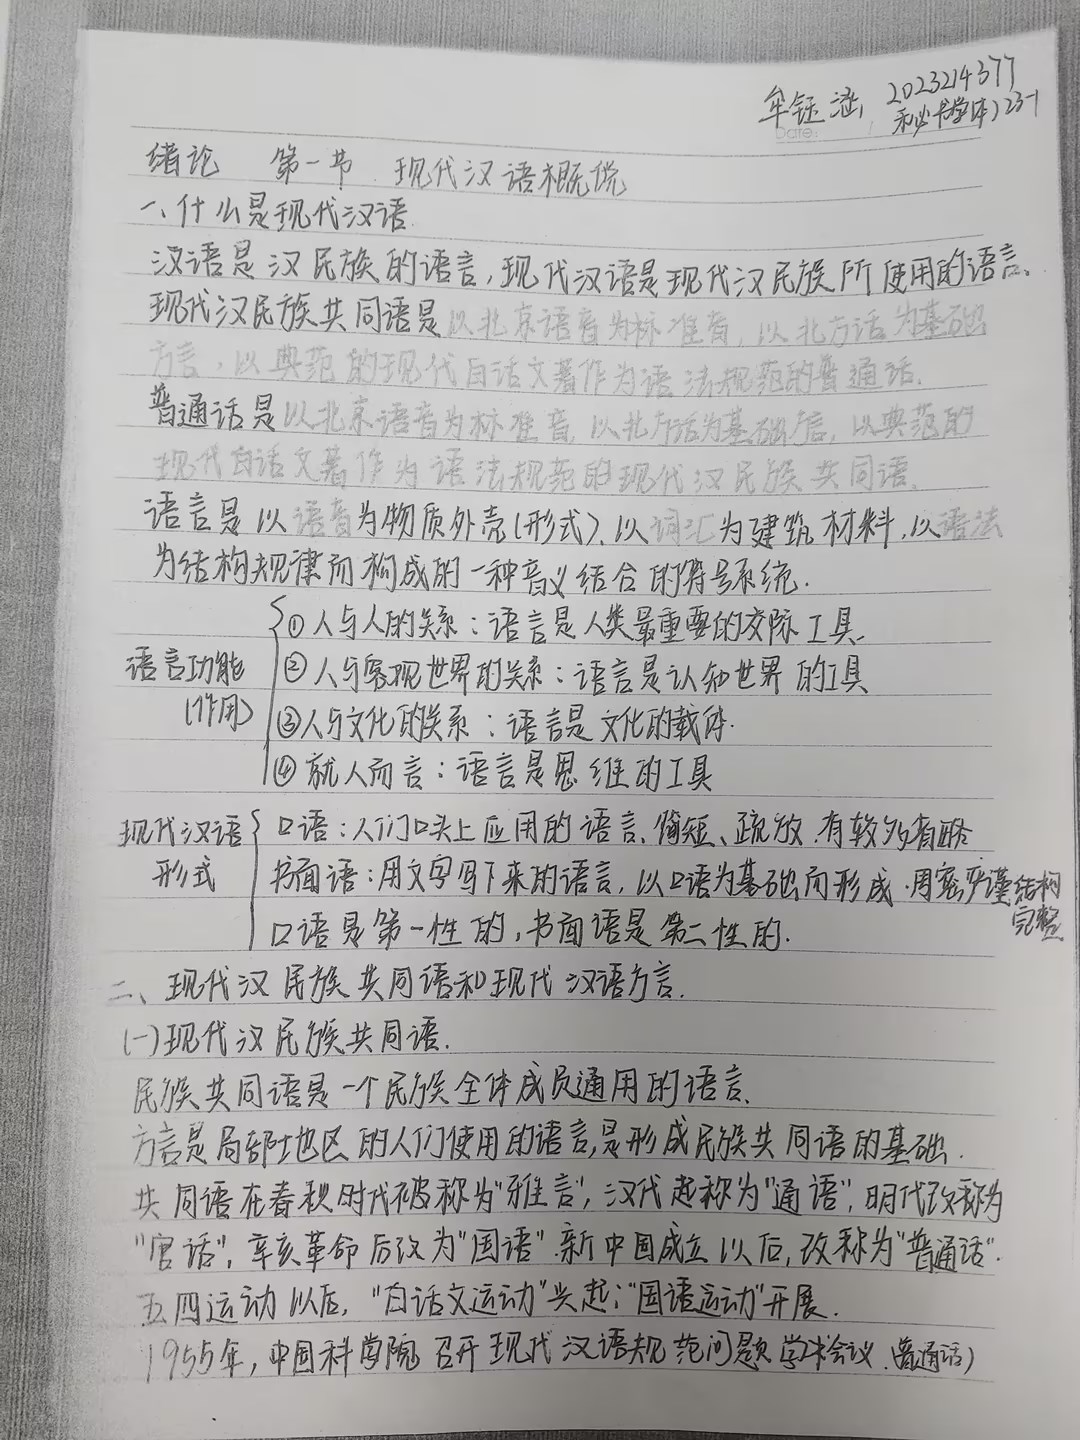 牟钰涵 2023214377
秘书学(本)23-1
Date:
绪论 第一节 现代汉语概说
一、什么是现代汉语
汉语是汉民族的语言,现代汉语是现代汉民族所使用的语言、
现代汉民族共同语是以北京语音为标准音,以北方话为基础
方言,以典范的现代白话文著作为语法规范的普通话.
普通话是以北京语音为标准音,以北方话为基础方言,以典范的
现代白话文著作为语法规范的现代汉民族共同语.
语言是以语音为物质外壳(形式)、以词汇为建筑材料,以语法
为结构规律而构成的一种音义结合的符号系统.
语言功能(作用)
①人与人的关系:语言是人类最重要的交际工具、
②人与客观世界的关系:语言是认知世界的工具
③人与文化的关系:语言是文化的载体.
④就人而言:语言是思维的工具
现代汉语形式
口语:人们口头上应用的语言、简短、疏放.有较多省略
书面语:用文字写下来的语言,以口语为基础而形成.周密严谨结构完整
口语是第一性的,书面语是第二性的.
二、现代汉民族共同语和现代汉语方言.
(一)现代汉民族共同语.
民族共同语是一个民族全体成员通用的语言、
方言是局部地区的人们使用的语言,是形成民族共同语的基础.
共同语在春秋时代被称为“雅言”,汉代起称为“通语”,明代改称为
“官话”,辛亥革命后改为“国语”.新中国成立以后,改称为“普通话”.
五四运动以后,“白话文运动”兴起;“国语运动”开展.
1955年,中国科学院召开现代汉语规范问题学术会议.(普通话)